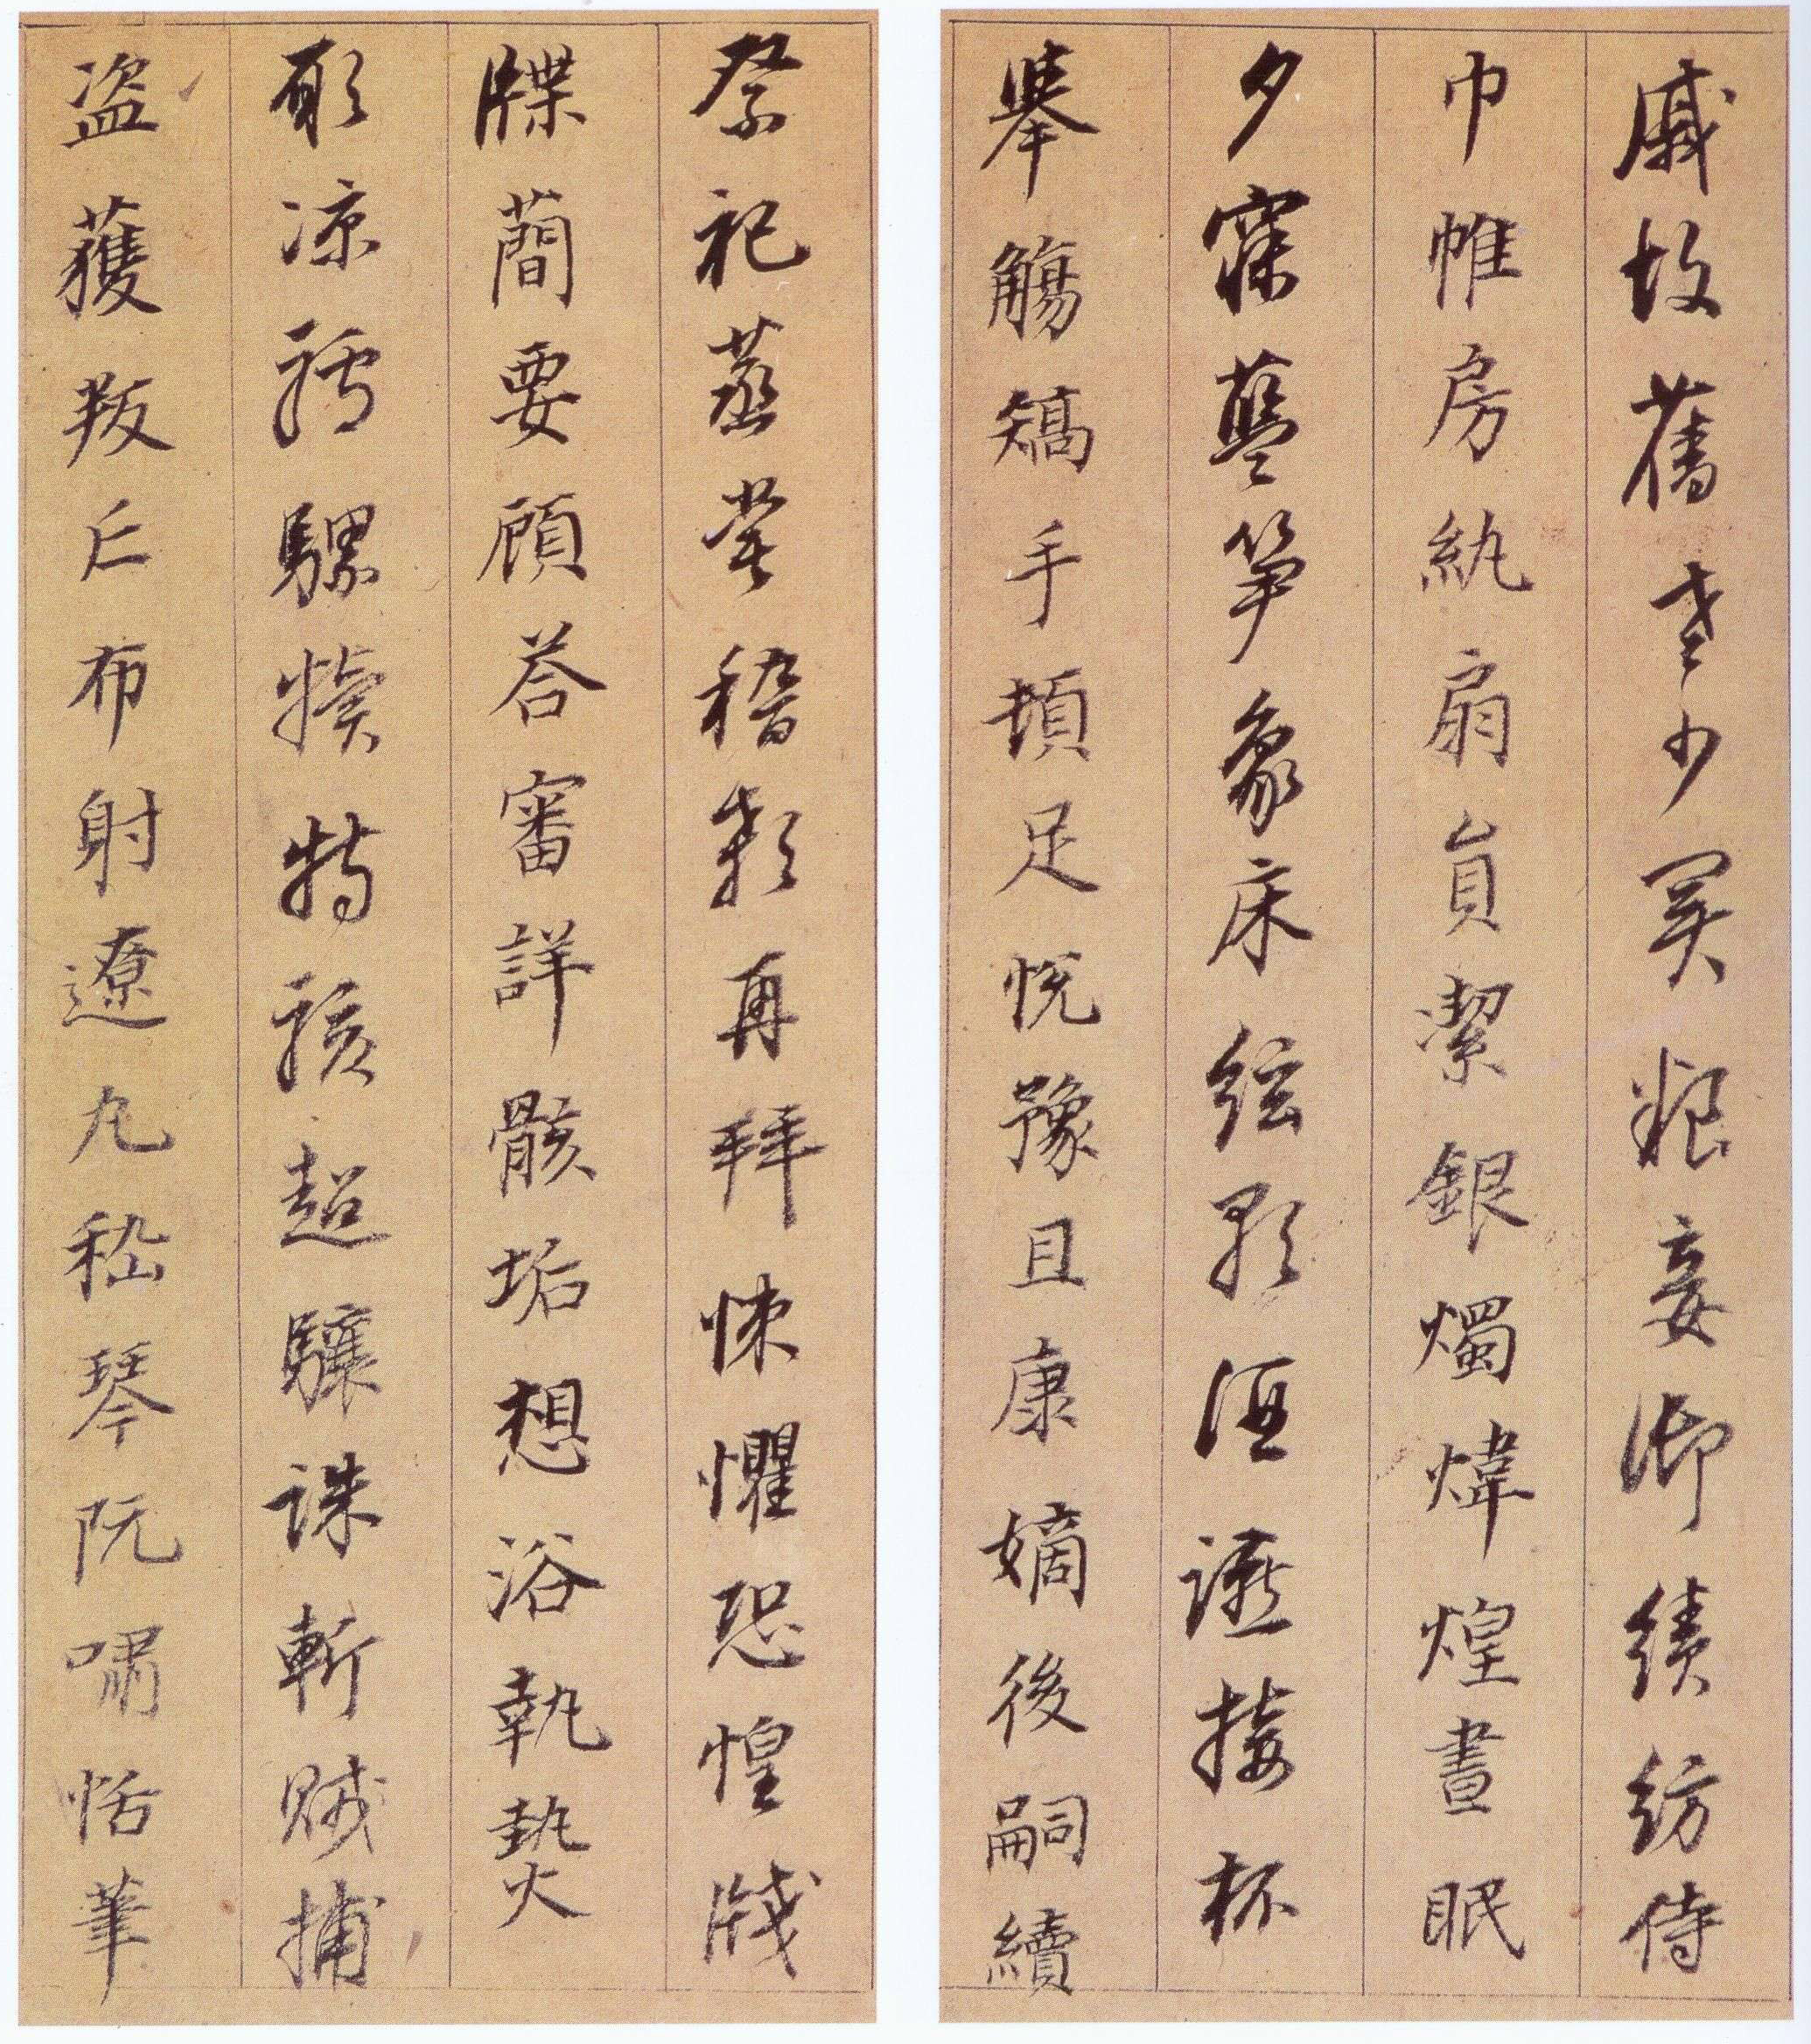 戚故舊老少異粮妾御績紡侍
巾帷房紈扇員潔銀燭煒煌晝眠
夕寐藍笋象床絃歌酒讌接杯
舉觴矯手頓足悦豫且康嫡後嗣續
祭祀蒸甞稽顙再拜悚懼恐惶牋
牒蕳要顧荅審詳骸垢想浴執熱
願凉驢騾犢特駭超驤誅斬賊捕
盗獲叛亡布射遼丸嵇琴阮嘯恬筆